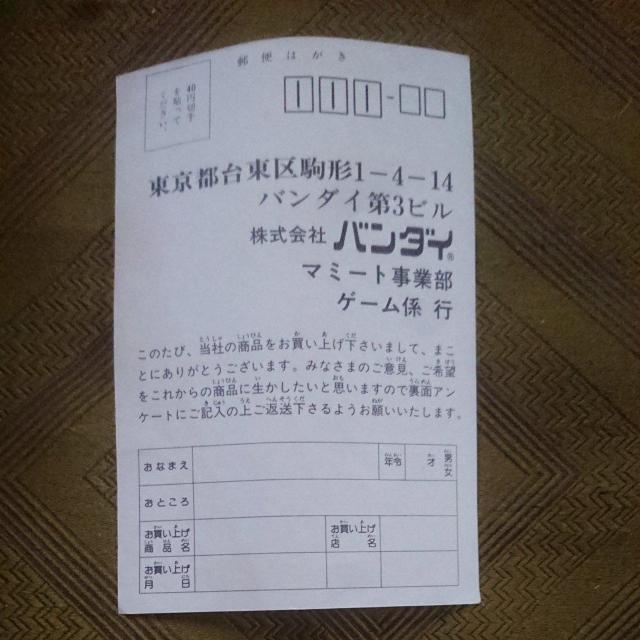 郵便はがき
40円切手
を貼って
ください。
111-
東京都台東区駒形1-4-14
バンダイ第3ビル
株式会社 バンダイ®
マミート事業部
ゲーム係 行
このたび、当社の商品をお買い上げ下さいまして、まこ
とにありがとうございます。みなさまのご意見、ご希望
をこれからの商品に生かしたいと思いますので裏面アン
ケートにご記入の上ご返送下さるようお願いいたします。
おなまえ 年令 才 男 女
おところ
お買い上げ商品名 お買い上げ店名
お買い上げ月日